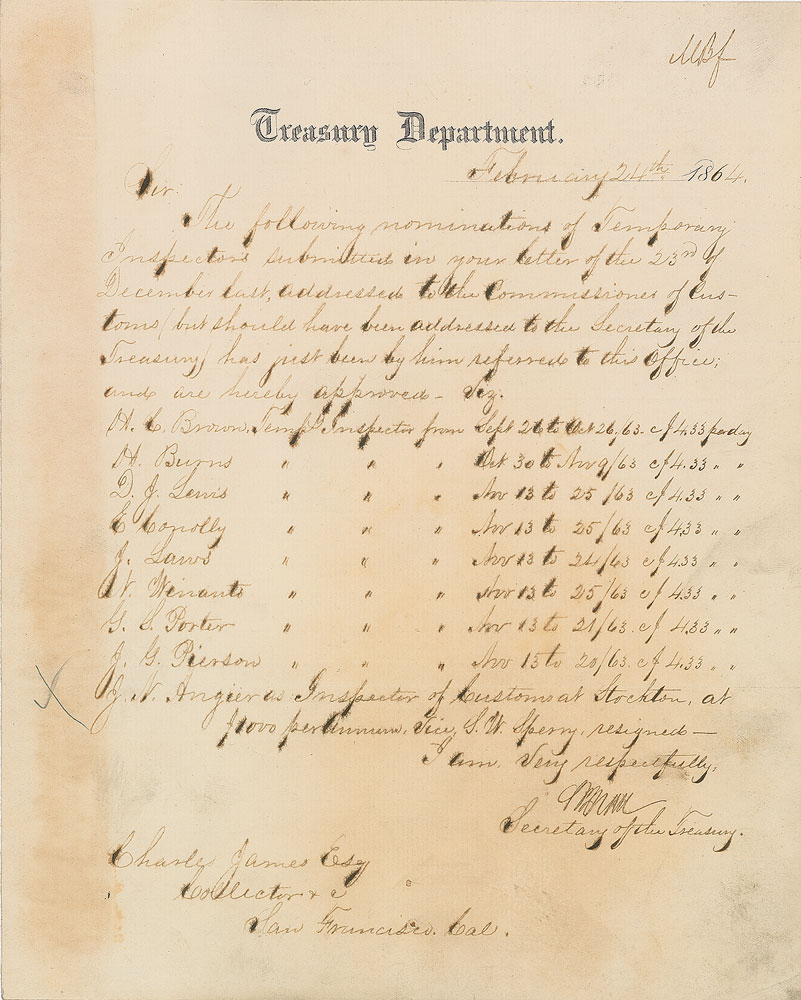 MBf
Treasury Department.
February 24th 1864.
Sir:
The following nominations of Temporary
Inspectors submitted in your letter of the 23rd of
December last, addressed to the Commissioner of Cus-
toms (but should have been addressed to the Secretary of the
Treasury) has just been by him referred to this Office;
and are hereby approved - Viz.
H. C. Brown, Temp. Inspector from Sept 26 to Oct 26, 63. @ 4.33 per day
H. Burns " " " Oct 30 to Nov 9/63 @ 4.33 " "
D. J. Lewis " " " Nov 13 to 25/63 @ 4.33 " "
E Conolly " " " Nov 13 to 25/63 @ 4.33 " "
J. Laws " " " Nov 13 to 24/63 @ 4.33 " "
W. Winants " " " Nov 13 to 25/63 @ 4.33 " "
G. S. Porter " " " Nov 13 to 21/63. @ 4.33 " "
J. G. Pierson " " " Nov 15 to 20/63. @ 4.33 " "
J. N. Angier as Inspector of Customs at Stockton, at
$1000 per annum, Vice, S. W. Sperry, resigned—
I am, Very respectfully,
Secretary of the Treasury.
Charles James Esq
Collector & c
San Francisco. Cal.